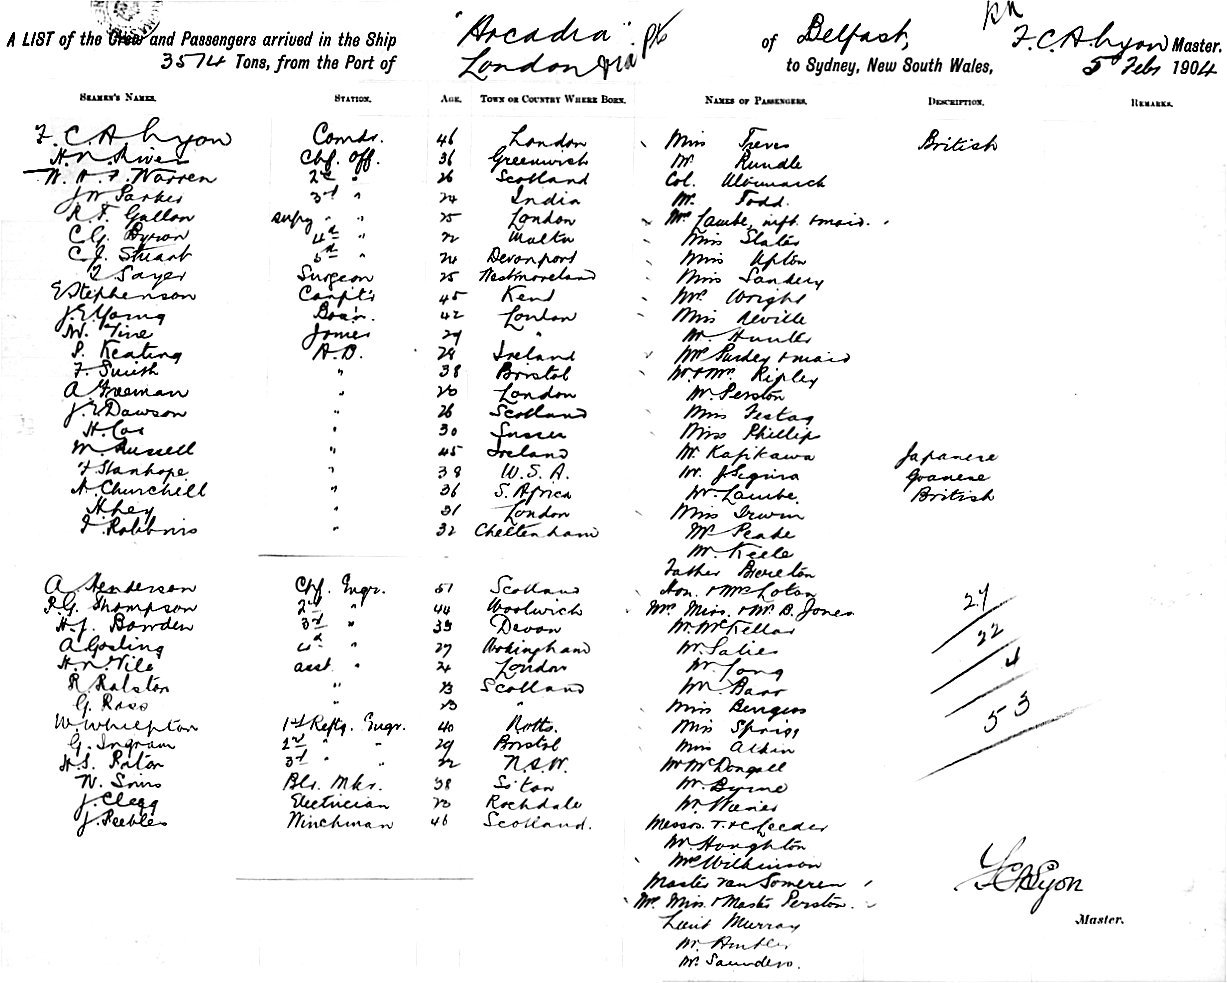 A LIST of the Crew and Passengers arrived in the Ship "Arcadia" of Belfast, F.C.A. Lyon Master.
3574 Tons, from the Port of London to Sydney, New South Wales, 5 Feb 1904
SEAMEN'S NAMES. STATION. AGE. TOWN OR COUNTRY WHERE BORN. NAMES OF PASSENGERS. DESCRIPTION. REMARKS.
F. C. A. Lyon Comdr. 46 London
Chf. Off. 36 Greenwich
Warren 2nd " 26 Scotland
J. W. Parker 3rd " 24 India
R. F. Gallon supy " " 25 London
C. G. Byron 4th " 22 Malta
C. J. Stuart 5th " 24 Devonport
Sayer Surgeon 25 Westmoreland
E Stephenson Carpt'r 45 Kent
J. E. Young Bos'n. 42 London
29 "
S. Keating A.B. 28 Ireland
F. Smith " 38 Bristol
A Freeman " 20 London
Dawson " 26 Scotland
H. Cox " 30 Sussex
W. Russell " 45 Ireland
F Stanhope " 38 U.S.A.
A. Churchill " 36 S. Africa
" 31 London
F. Robbins " 32 Cheltenham
A. Henderson Chf. Engr. 51 Scotland
R. G. Thompson 2nd " 44 Woolwich
H. J. Bowden 3rd " 39 Devon
A Gosling 4th " 27
asst " 24 London
R. Ralston " 23 Scotland
G. Ross " 23 "
W. Whilpton 1st Refg. Engr. 40 Notts.
G. Ingram 2nd " " 29 Bristol
3rd " " 22 N.S.W.
W. Sims Blr. Mkr. 38 So'ton
J. Clegg Electrician 23 Rochdale
J. Peebles Winchman 46 Scotland.
Miss Treves British
Mr Rundle
Col.
Mr. Todd.
Mrs Lambe, inft & maid.
Miss Slater
Miss Upton
Miss Sandery
Mrs. Wright
Miss Neville
Mr. Hunter
Mrs Purdey & maid
Mr & Mrs. Ripley
Mr. Perston
Miss Festag
Miss Phillips
Mr. Kapikawa Japanese
Mr. J. Segura Goanese
Mr. Lambe. British
Miss Irwin
Mr. Peake
Mr. Keele
Father Brereton
Hon. & Mrs Loton
Mrs. Miss. & Mr. B. Jones
Mr. McKellar
Mr.
Mr. Long
Mr. Barr
Miss Burgess
Miss Sprigg
Miss Atkin
Mr. McDougall
Mr. Byrne
Mr.
Messrs. T. & C. Leeder
Mr. Houghton
Mrs Wilkinson
Master Van Someren
Mrs. Miss. & Master Perston.
Lieut Murray
Mr.
Mr. Saunders.
27
22
4
53
F C A Lyon
Master.